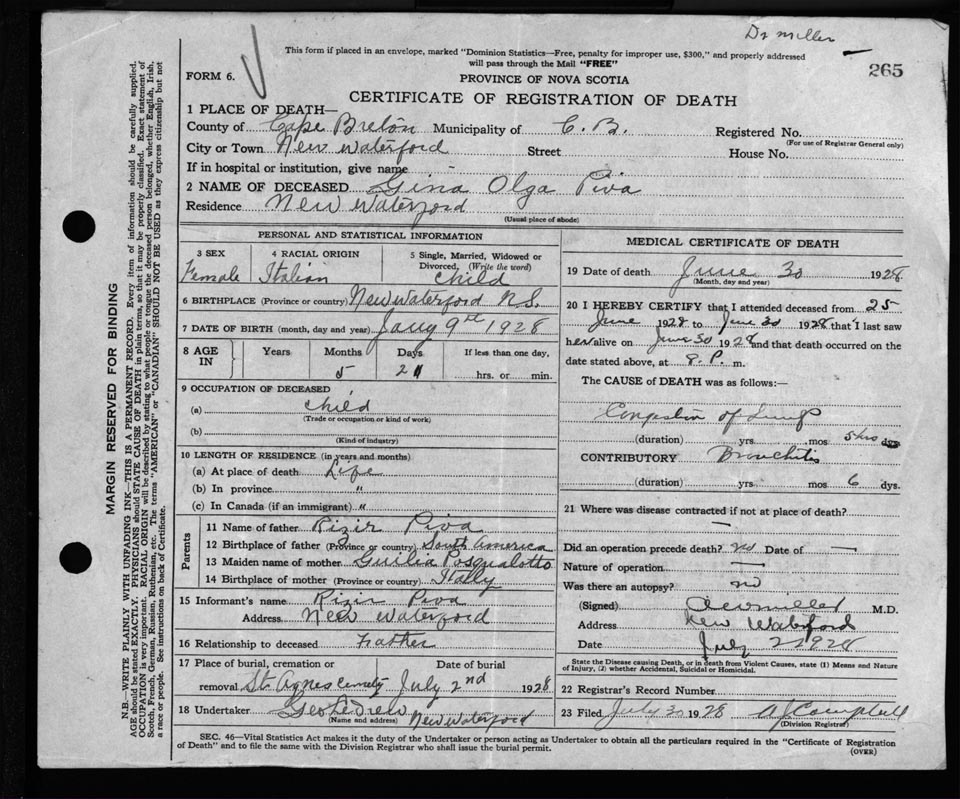 Dr Miller
This form if placed in an envelope, marked "Dominion Statistics—Free, penalty for improper use, $300," and properly addressed
will pass through the Mail "FREE"
265
FORM 6.
PROVINCE OF NOVA SCOTIA
CERTIFICATE OF REGISTRATION OF DEATH
1 PLACE OF DEATH—
County of Cape Breton Municipality of C. B. Registered No.
(For use of Registrar General only)
City or Town New Waterford Street House No.
If in hospital or institution, give name
2 NAME OF DECEASED Gina Olga Piva
Residence New Waterford
(Usual place of abode)
PERSONAL AND STATISTICAL INFORMATION
3 SEX Female
4 RACIAL ORIGIN Italian
5 Single, Married, Widowed or Divorced, (Write the word) Child
6 BIRTHPLACE (Province or country) New Waterford N.S.
7 DATE OF BIRTH (month, day and year) Jany 9th 1928
8 AGE IN Years Months Days If less than one day,
5 21 hrs. or min.
9 OCCUPATION OF DECEASED
(a) Child
(Trade or occupation or kind of work)
(b)
(Kind of industry)
10 LENGTH OF RESIDENCE (in years and months)
(a) At place of death Life
(b) In province "
(c) In Canada (if an immigrant) "
Parents
11 Name of father Rizir Piva
12 Birthplace of father (Province or country) South America
13 Maiden name of mother Guilia Pasqualotto
14 Birthplace of mother (Province or country) Itally
15 Informant's name Rizir Piva
Address New Waterford
16 Relationship to deceased Father
17 Place of burial, cremation or removal St. Agnes Cemety
Date of burial July 2nd 1928
18 Undertaker Geo
(Name and address) New Waterford
MEDICAL CERTIFICATE OF DEATH
19 Date of death June 30 1928
(Month, day and year)
20 I HEREBY CERTIFY that I attended deceased from 25
June 1928 to June 30 1928 that I last saw
her alive on June 30 1928 and that death occurred on the
date stated above, at 8. P. m.
The CAUSE of DEATH was as follows:
Congestion of Lungs
(duration) yrs. mos 5 hrs dys
CONTRIBUTORY Bronchitis
(duration) yrs mos 6 dys.
21 Where was disease contracted if not at place of death?
—
Did an operation precede death? no Date of —
Nature of operation —
Was there an autopsy? no
(Signed) Miller M.D.
Address New Waterford
Date July 2 1928
State the Disease causing Death, or in death from Violent Causes, state (1) Means and Nature
of Injury, (2) whether Accidental, Suicidal or Homicidal.
22 Registrar's Record Number
23 Filed July 30 1928 A J Campbell
(Division Registrar)
SEC. 46—Vital Statistics Act makes it the duty of the Undertaker or person acting as Undertaker to obtain all the particulars required in the "Certificate of Registration
of Death" and to file the same with the Division Registrar who shall issue the burial permit.
(OVER)
MARGIN RESERVED FOR BINDING
N.B.—WRITE PLAINLY WITH UNFADING INK—THIS IS A PERMANENT RECORD. Every item of information should be carefully supplied.
AGE should be stated EXACTLY. PHYSICIANS should STATE CAUSE OF DEATH in plain terms, so that it may be properly classified. Exact statement of
OCCUPATION is very important. RACIAL ORIGIN will be described by stating to what people or tongue the deceased person belonged, whether English, Irish,
Scotch, French, German, Russian, Ruthenian, etc. The terms "AMERICAN" or "CANADIAN" SHOULD NOT BE USED as they express citizenship but not
a race or people. See instructions on back of Certificate.